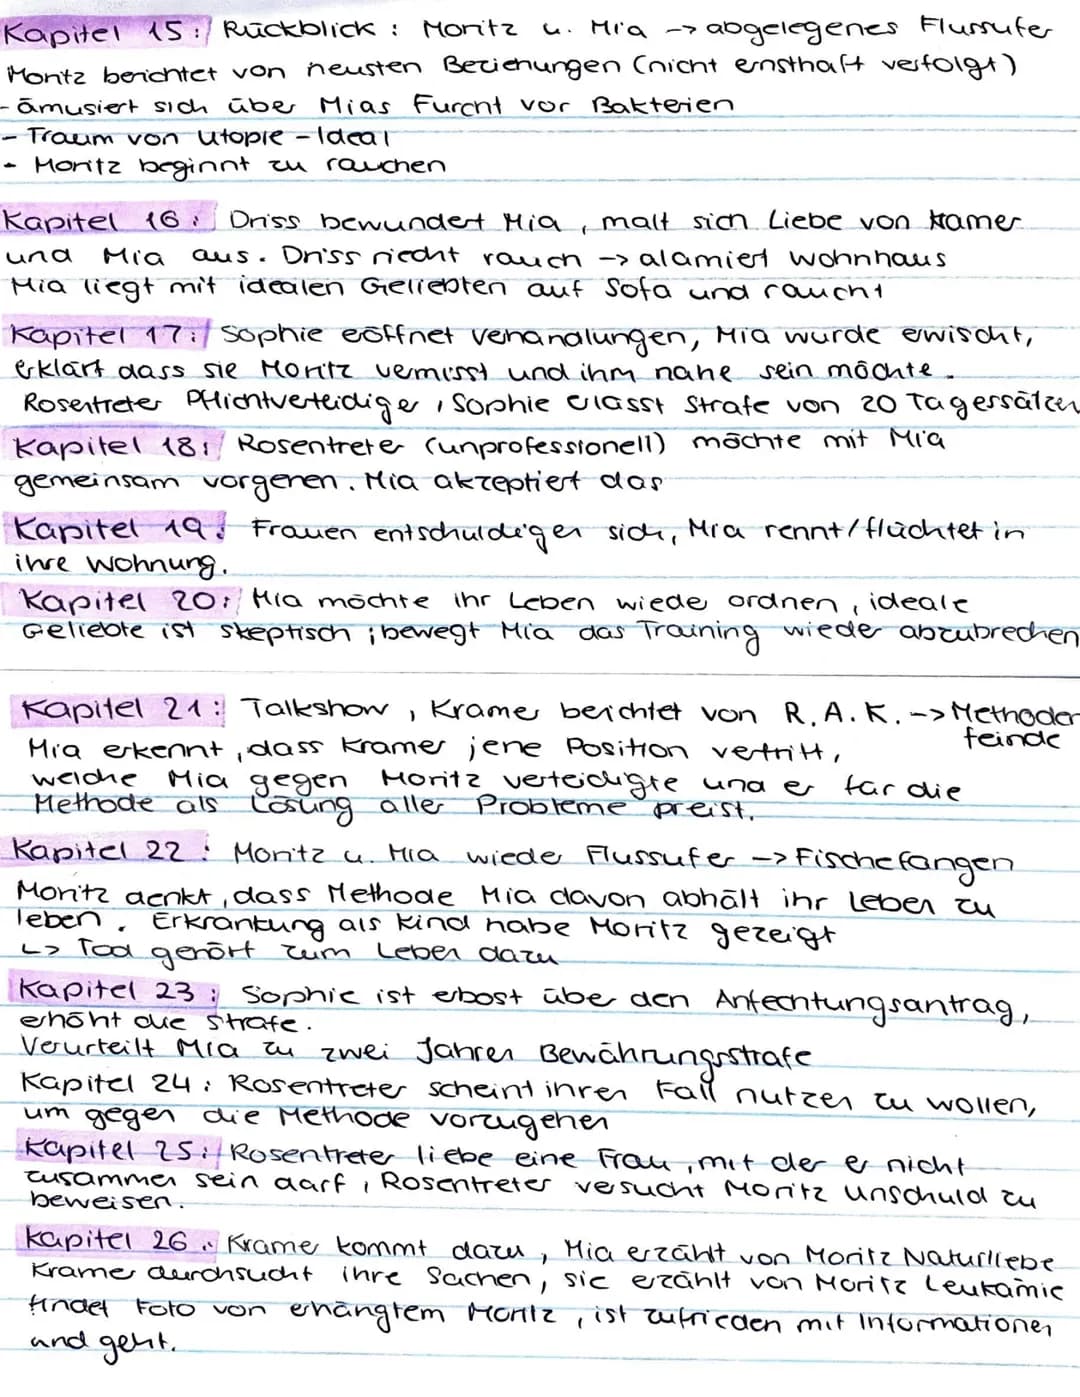 Kapitel 15: Rückblick: Moritz u. Mia -> abgelegenes Flussufer
Moritz berichtet von neusten Beziehungen (nicht ernsthaft verfolgt)
- ämusiert sich über Mias Furcht vor Bakterien
- Traum von Utopie - Ideal
- Moritz beginnt zu rauchen
Kapitel 16: Driss bewundert Mia, malt sich Liebe von Kramer
und Mia aus. Driss riecht rauch -> alamiert Wohnhaus
Mia liegt mit idealen Geliebten auf Sofa und raucht
Kapitel 17: Sophie eröffnet Verhandlungen, Mia wurde erwischt,
erklärt dass sie Moritz vermisst und ihm nahe sein möchte.
Rosentreter Pflichtverteidiger, Sophie erlässt Strafe von 20 Tagessätzen
Kapitel 18: Rosentreter (unprofessionell) möchte mit Mia
gemeinsam vorgehen. Mia akzeptiert das
Kapitel 19: Frauen entschuldigen sich, Mia rennt/flüchtet in
ihre Wohnung.
Kapitel 20: Mia möchte ihr Leben wieder ordnen, ideale
Geliebte ist skeptisch; bewegt Mia das Training wieder abzubrechen
Kapitel 21: Talkshow, Kramer berichtet von R.A.K. -> Methoden
feinde
Mia erkennt, dass Kramer jene Position vertritt,
welche Mia gegen Moritz verteidigte und er für die
Methode als Lösung aller Probleme preist.
Kapitel 22: Moritz u. Mia wieder Flussufer -> Fische fangen
Moritz denkt, dass Methode Mia davon abhält ihr Leben zu
leben. Erkrankung als Kind habe Moritz gezeigt
↳ Tod gehört zum Leben dazu
Kapitel 23: Sophie ist erbost über den Anfechtungsantrag,
erhöht die Strafe.
Verurteilt Mia zu zwei Jahren Bewährungsstrafe
Kapitel 24: Rosentreter scheint ihren Fall nutzen zu wollen,
um gegen die Methode vorzugehen
Kapitel 25: Rosentreter liebe eine Frau, mit der er nicht
zusammen sein darf, Rosentreter versucht Moritz Unschuld zu
beweisen.
Kapitel 26: Kramer kommt dazu, Mia erzählt von Moritz Naturliebe
Kramer durchsucht ihre Sachen, sie erzählt von Moritz Leukämie
findet Foto von erhängtem Moritz, ist zufrieden mit Informationen
und geht.